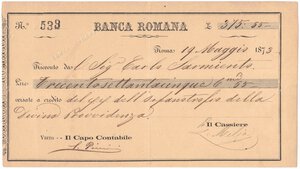 N.° 533 BANCA ROMANA £ 375.55
Roma 19 Maggio 1873
Ricevuto dal Sig. Carlo Sarmiento
Lire Trecentosettantacinque C.mi 55
versate a credito della
Divina Provvidenza
Visto Il Capo Contabile Il Cassiere